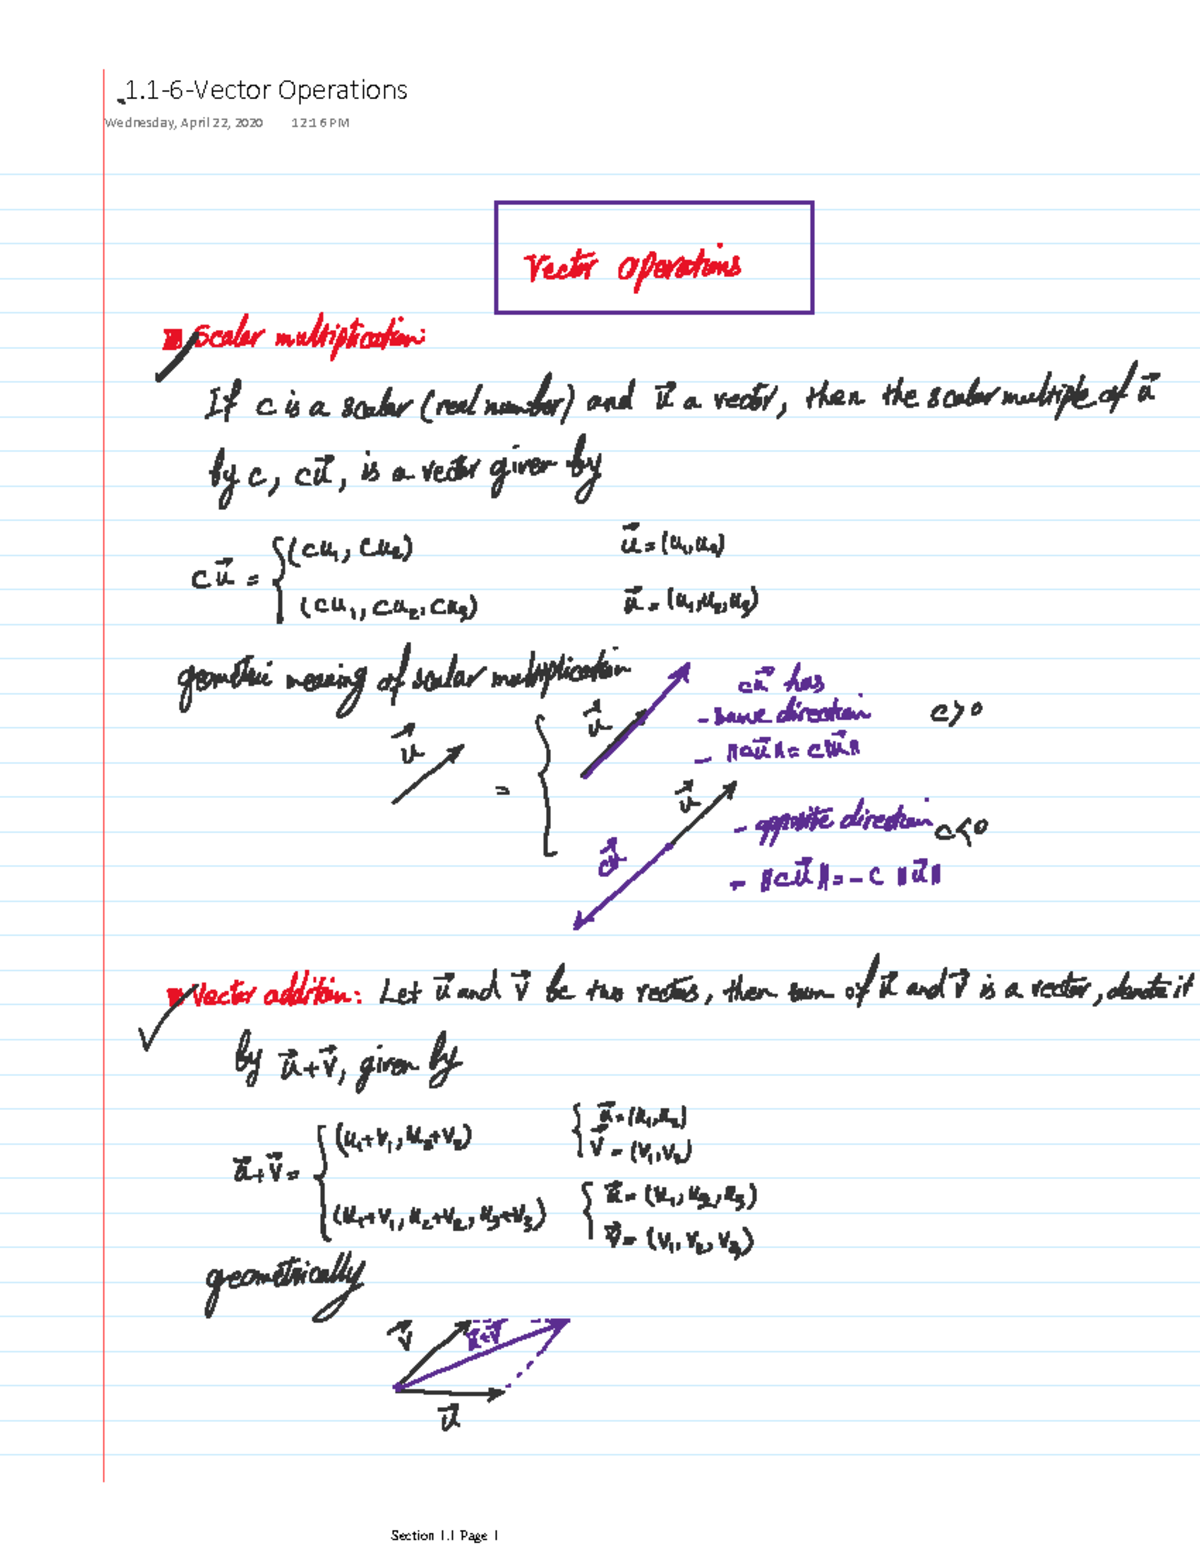 1.1-6-Vector Operations
Wednesday, April 22, 2020 12:16 PM
Vector Operations
Scalar multiplication:
If c is a scalar (real number) and u⃗ a vector, then the scalar multiple of u⃗
by c, cu⃗, is a vector given by
cu⃗ = { (cu₁, cu₂) u⃗ = (u₁, u₂)
(cu₁, cu₂, cu₃) u⃗ = (u₁, u₂, u₃)
geometric meaning of scalar multiplication
u⃗ = { u⃗ cu⃗ has
- same direction c>0
- ‖cu⃗‖ = c‖u⃗‖
u⃗
- opposite direction c<0
cu⃗
- ‖cu⃗‖ = -c ‖u⃗‖
Vector addition: Let u⃗ and v⃗ be two vectors, then sum of u⃗ and v⃗ is a vector, denote it
by u⃗+v⃗, given by
u⃗+v⃗ = { (u₁+v₁, u₂+v₂) { u⃗ = (u₁, u₂)
v⃗ = (v₁, v₂)
(u₁+v₁, u₂+v₂, u₃+v₃) { u⃗ = (u₁, u₂, u₃)
v⃗ = (v₁, v₂, v₃)
geometrically
v⃗ u⃗+v⃗
u⃗
Section 1.1 Page 1